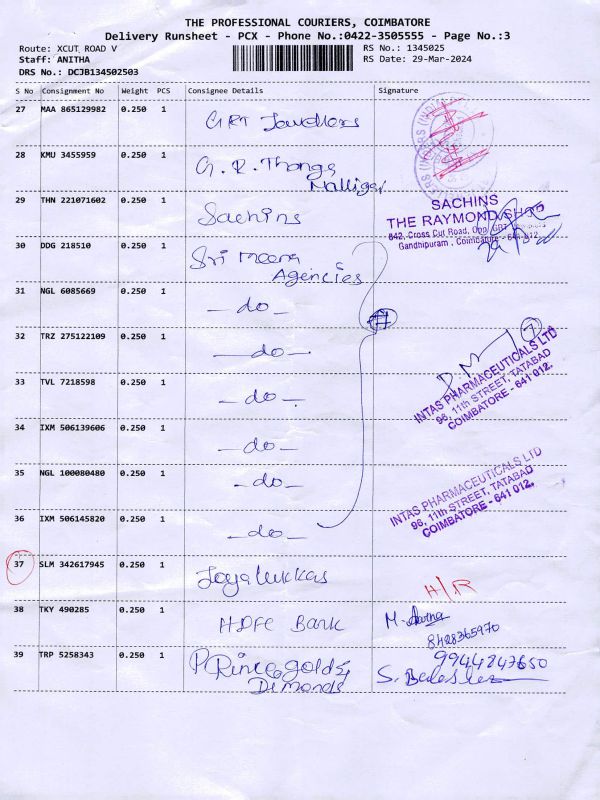 THE PROFESSIONAL COURIERS, COIMBATORE
Delivery Runsheet - PCX - Phone No.:0422-3505555 - Page No.:3
Route: XCUT ROAD V
RS No.: 1345025
Staff: ANITHA
RS Date: 29-Mar-2024
DRS No.: DCJB134502503
S No Consignment No Weight PCS Consignee Details Signature
27 MAA 865129982 0.250 1 GRT Jewellers
28 KMU 3455959 0.250 1 G. R. Thanga
Malligai
29 THN 221071602 0.250 1 Sachins
SACHINS
THE RAYMOND SHOP
642, Cross Cut Road, Opp. GRT
Gandhipuram, Coimbatore - 641 012.
30 DDG 218510 0.250 1 Sri meena
Agencies
31 NGL 6085669 0.250 1 - do -
32 TRZ 275122109 0.250 1 - do -
7
33 TVL 7218598 0.250 1 - do -
INTAS PHARMACEUTICALS LTD
96, 11th STREET, TATABAD
COIMBATORE - 641 012.
34 IXM 506139606 0.250 1 - do -
35 NGL 100080480 0.250 1 - do -
INTAS PHARMACEUTICALS LTD
96, 11th STREET, TATABAD
COIMBATORE - 641 012.
36 IXM 506145820 0.250 1 - do -
37 SLM 342617945 0.250 1 Joyalukkas H/R
38 TKY 490285 0.250 1 HDFC Bank M.
8428365970
39 TRP 5258343 0.250 1 PRince golds
Dimonds
9944247650
S.